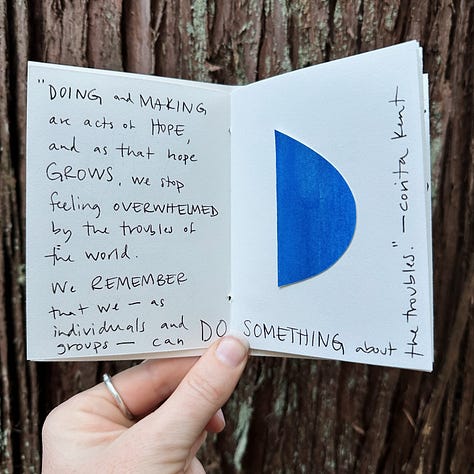 "DOING and MAKING
are acts of HOPE,
and as that hope
GROWS, we stop
feeling OVERWHELMED
by the troubles of
the world.
We REMEMBER
that we — as
individuals and
groups — can DO SOMETHING about
the troubles." — corita kent